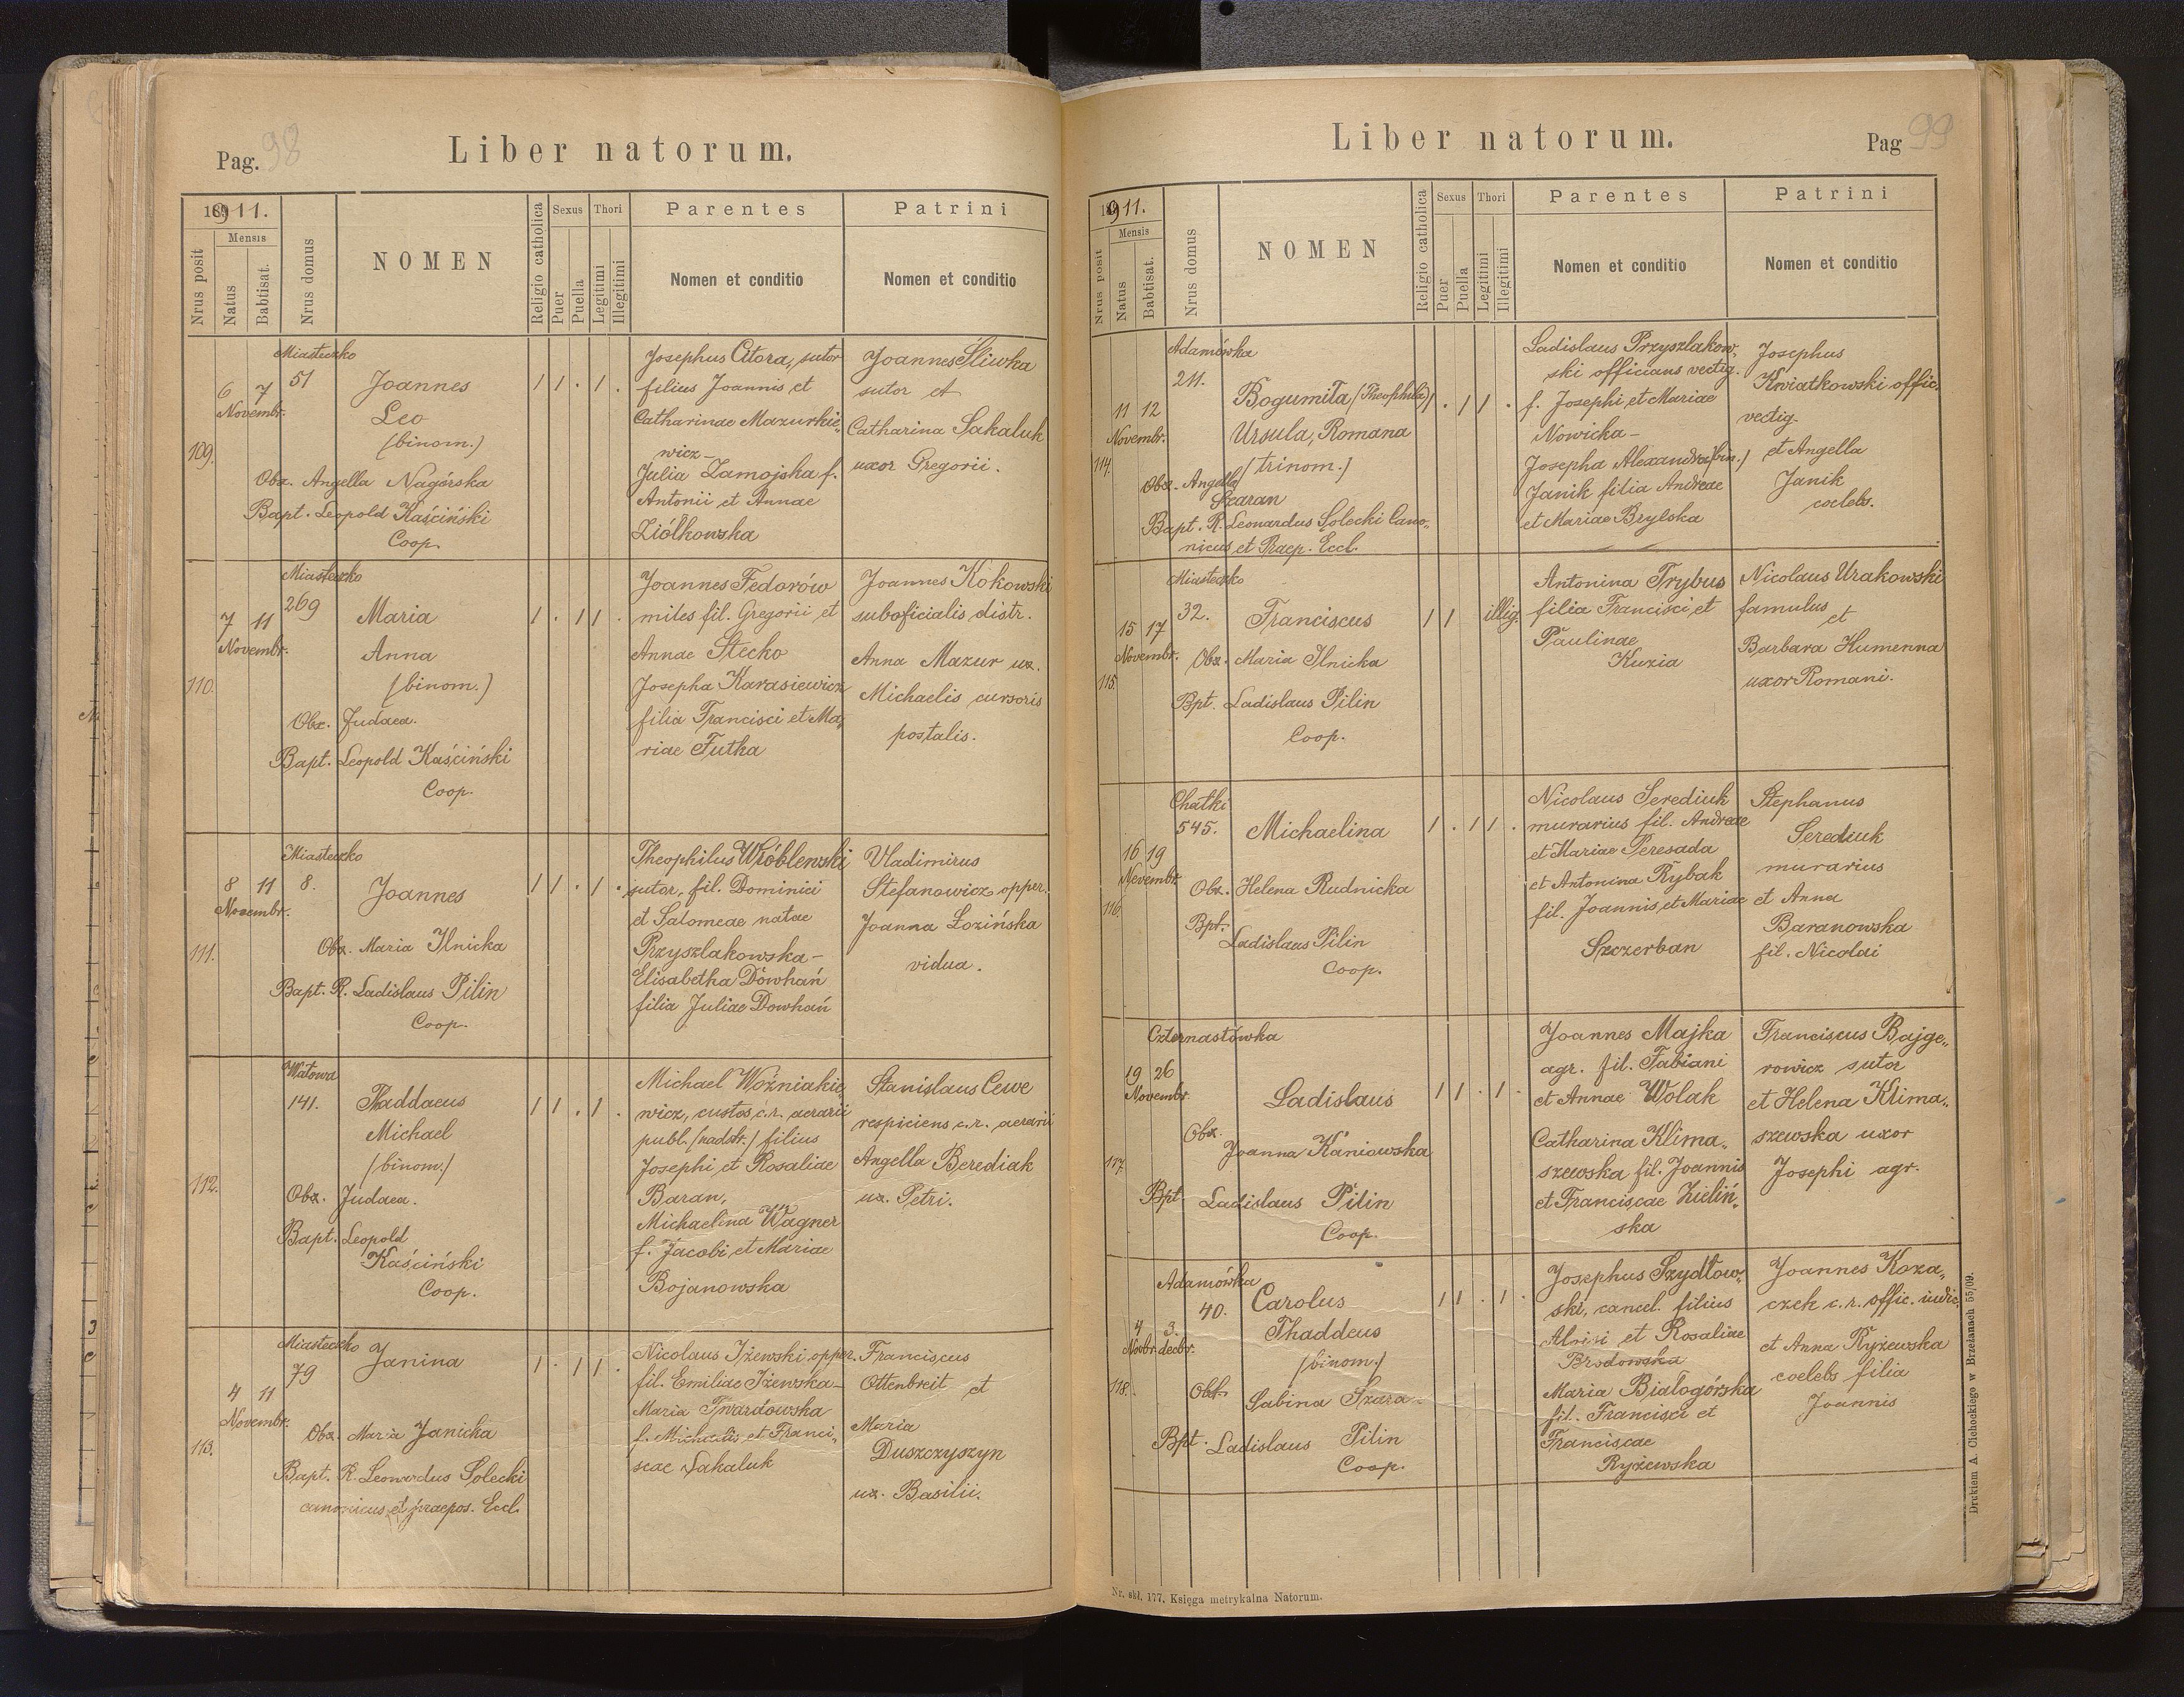 Pag. 98
Liber natorum.
1911.
Mensis
Nrus posit
Natus
Babtisat.
Nrus domus
NOMEN
Religio catholica
Sexus
Puer
Puella
Thori
Legitimi
Illegitimi
Parentes
Nomen et conditio
Patrini
Nomen et conditio
109.
6 7
Novembr.
Miasteczko
51
Joannes
Leo
(binom.)
Obx. Angella Nagórska
Bapt. Leopold Kaściński
Coop.
1 1 . 1 .
Josephus Citora, sutor
filius Joannis et
Catharinae Mazurkie„
wicz –
Julia Zamojska f.
Antonii et Annae
Ziółkowska
Joannes Śliwka
sutor et
Catharina Sakaluk
uxor Gregorii.
110.
7 11
Novembr.
Miasteczko
269
Maria
Anna
(binom.)
Obx. Judaea.
Bapt. Leopold Kaściński
Coop.
1 . 1 1 .
Joannes Fedorów
miles fil. Gregorii et
Annae Stecko
Josepha Karasiewicz
filia Francisci et Ma„
riae Futka
Joannes Kokowski
suboficialis distr.
Anna Mazur ux.
Michaelis cursoris
postalis.
111.
8 11
Novembr.
Miasteczko
8.
Joannes
Obx. Maria Ilnicka
Bapt. R. Ladislaus Pilin
Coop.
1 1 . 1 .
Theophilus Wróblewski
sutor, fil. Dominici
et Salomeae natae
Przyszlakowska –
Elisabetha Dowhań
filia Juliae Dowhań
Vladimirus
Stefanowicz opper.
Joanna Łozińska
vidua.
112.
Watowa
141.
Thaddaeus
Michael
(binom.)
Obx. Judaea.
Bapt. Leopold
Kaściński
Coop.
1 1 . 1 .
Michael Woźniakie„
wicz, custos c.r. aerarii
publ. (nadstr.) filius
Josephi et Rosaliae
Baran,
Michaelina Wagner
f. Jacobi et Mariae
Bojanowska
Stanislaus Cewe
respiciens c.r. aerarii
Angella Berediak
ux. Petri.
113.
4 11
Novembr.
Miasteczko
79
Janina
Obx. Maria Janicka
Bapt. R. Leonardus Solecki
canonicus et praepos. Eccl.
1 . 1 1 .
Nicolaus Iżewski opper.
fil. Emiliae Iżewska –
Maria Twardowska
f. Michaelis et Franci„
scae Sakaluk
Franciscus
Ottenbreit et
Maria
Duszczyszyn
ux. Basilii.
Liber natorum.
Pag 99
1911.
Mensis
Nrus posit
Natus
Babtisat.
Nrus domus
NOMEN
Religio catholica
Sexus
Puer
Puella
Thori
Legitimi
Illegitimi
Parentes
Nomen et conditio
Patrini
Nomen et conditio
114.
11 12
Novembr.
Adamówka
211.
Bogumiła (Theophila)
Ursula, Romana
(trinom.)
Obx. Angella
Szaran
Bapt. R. Leonardus Solecki Cano„
nicus et Praep. Eccl.
1 . 1 1 .
Ladislaus Przyszlakow„
ski officians vectig.
f. Josephi et Mariae
Nowicka –
Josepha Alexandra (bin.)
Janik filia Andreae
et Mariae Brylska
Josephus
Kwiatkowski offic.
vectig.
et Angella
Janik
coelebs.
115.
15 17
Novembr.
Miasteczko
32.
Franciscus
Obx. Maria Ilnicka
Bpt. Ladislaus Pilin
Coop.
1 1 illig.
Antonina Trybus
filia Francisci et
Paulinae
Kuzia
Nicolaus Urakowski
famulus et
Barbara Humenna
uxor Romani.
116.
16 19
Novembr.
Chatki
545.
Michaelina
Obx. Helena Rudnicka
Bpt.
Ladislaus Pilin
Coop.
1 . 1 1 .
Nicolaus Serediuk
murarius fil. Andreae
et Mariae Peresada
et Antonina Rybak
fil. Joannis et Mariae
Szczerban
Stephanus
Serediuk
murarius
et Anna
Baranowska
fil. Nicolai
117.
19 26
Novembr.
Czternastówka
Ladislaus
Obx.
Joanna Kaniowska
Bpt. Ladislaus Pilin
Coop.
1 1 . 1 .
Joannes Majka
agr. fil. Fabiani
et Annae Wolak
Catharina Klima„
szewska fil. Joannis
et Franciscae Zieliń„
ska
Franciscus Bajge„
rowicz sutor
et Helena Klima„
szewska uxor
Josephi agr.
118.
4 3.
Novbr. decbr.
Adamówka
40.
Carolus
Thaddeus
(binom.)
Obst.
Sabina Szara –
Bpt. Ladislaus Pilin
Coop.
1 1 . 1 .
Josephus Szydłow„
ski, cancel. filius
Aloisi et Rosaliae
Brodowska
Maria Białogórska
fil. Francisci et
Franciscae
Ryżewska
Joannes Koza„
czek c.r. offic. iudic.
et Anna Ryżewska
coelebs filia
Joannis
Drukiem A. Cichockiego w Brzeżanach 55/09.
Nr. skł. 177. Księga metrykalna Natorum.